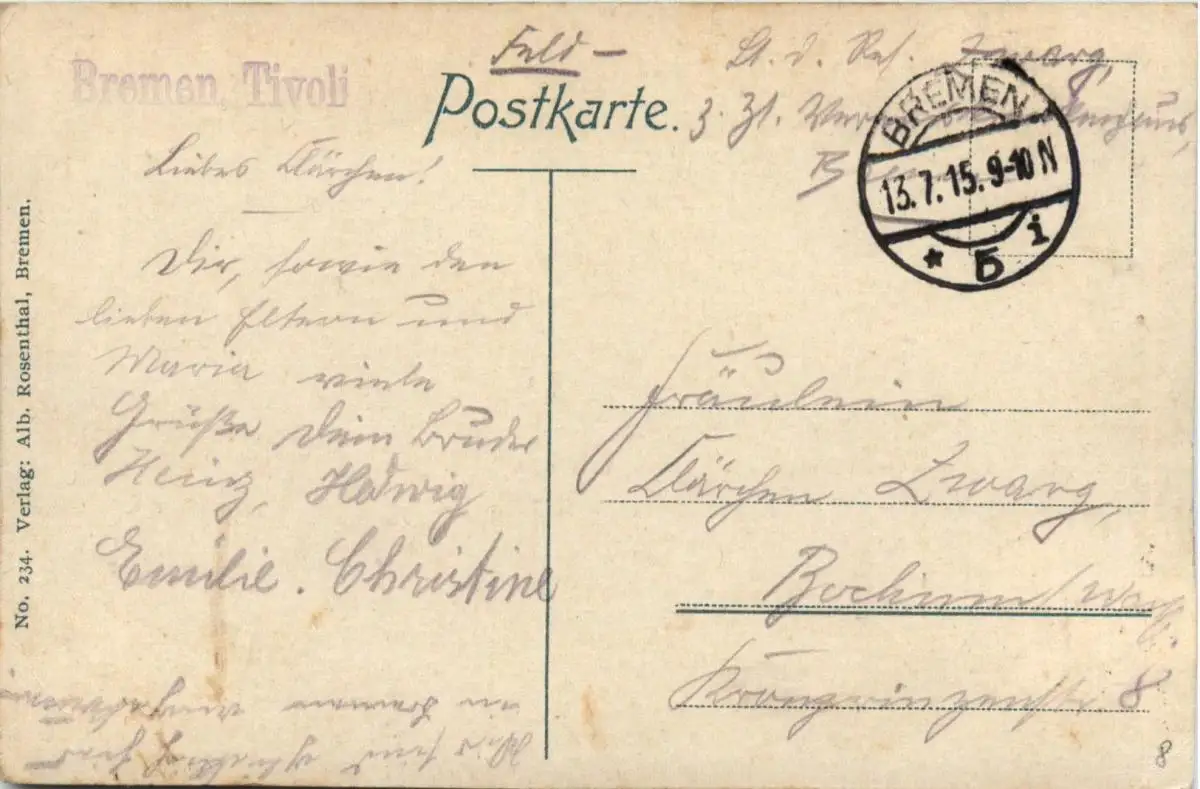 Bremen, Tivoli
Feld-
Postkarte.
Lt. d. Res. Zwarg,
z. Zt.
BREMEN
13.7.15. 9-10 N
* 5 i
Liebes Clärchen!
Dir, sowie den
lieben Eltern und
Maria viele
Grüße Dein Bruder
Heinz, Hedwig
Emilie. Christine
Fräulein
Clärchen Zwarg,
Bochum/Westf.
Kronprinzenstr 8
No. 234. Verlag: Alb. Rosenthal, Bremen.
8